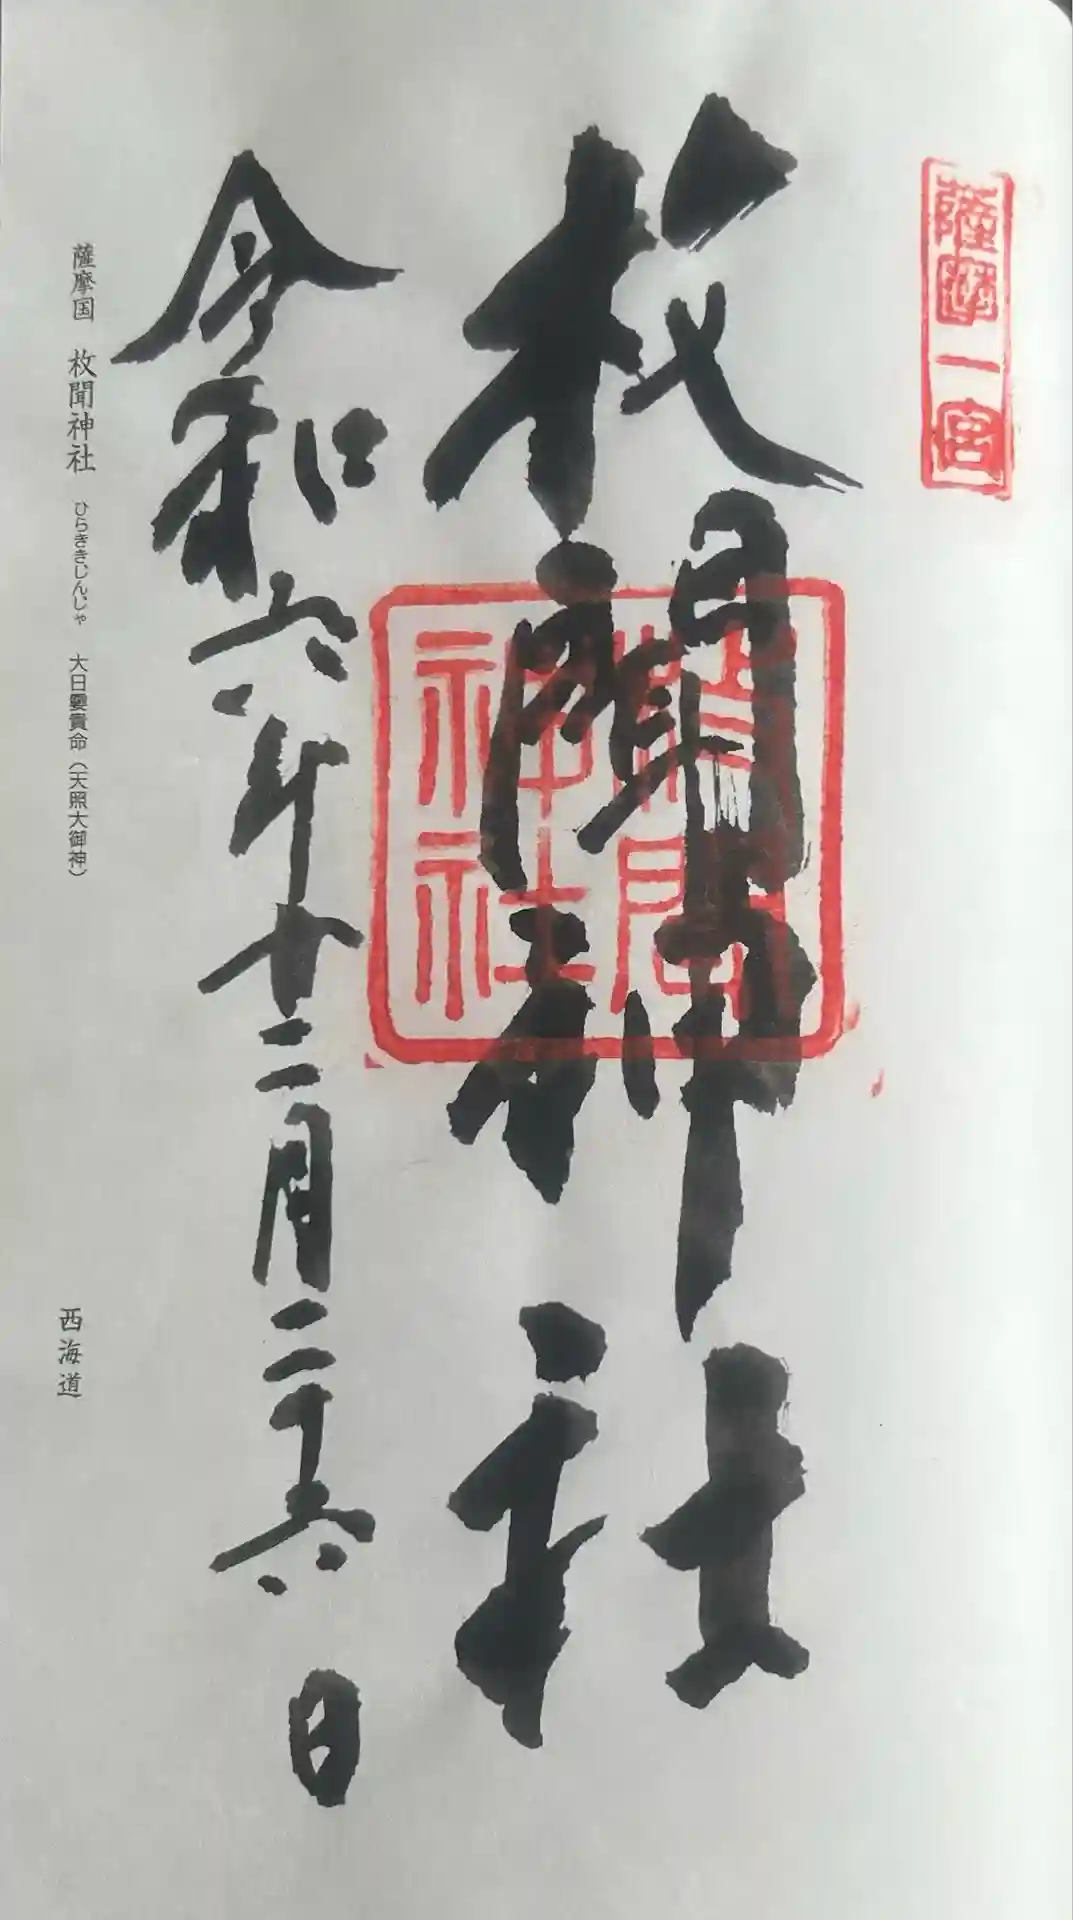 薩摩一宮
枚聞神社
枚聞神社
令和六年十二月二十六日
薩摩国 枚聞神社 ひらききじんじゃ 大日孁貴命（天照大御神）
西海道